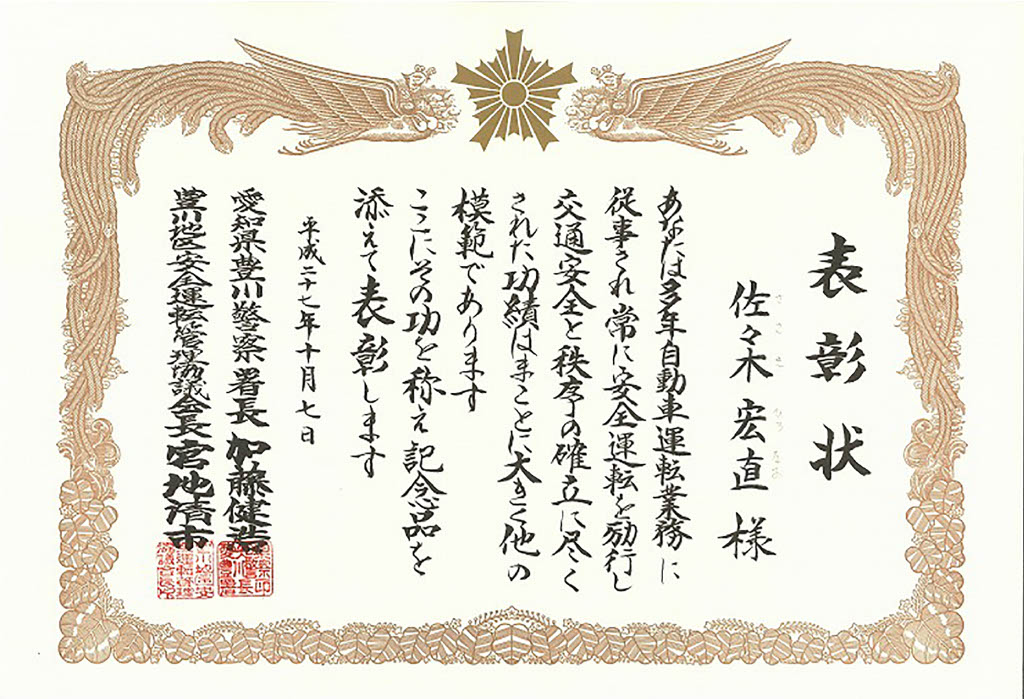 表彰状
佐々木宏直様
ささき ひろなお
あなたは多年自動車運転業務に
従事され常に安全運転を励行し
交通安全と秩序の確立に尽く
された功績はまことに大きく他の
模範であります
ここにその功を称え記念品を
添えて表彰します
平成二十七年十月七日
愛知県豊川警察署長 加藤健浩
豊川地区安全運転管理協議会長 宮地清市